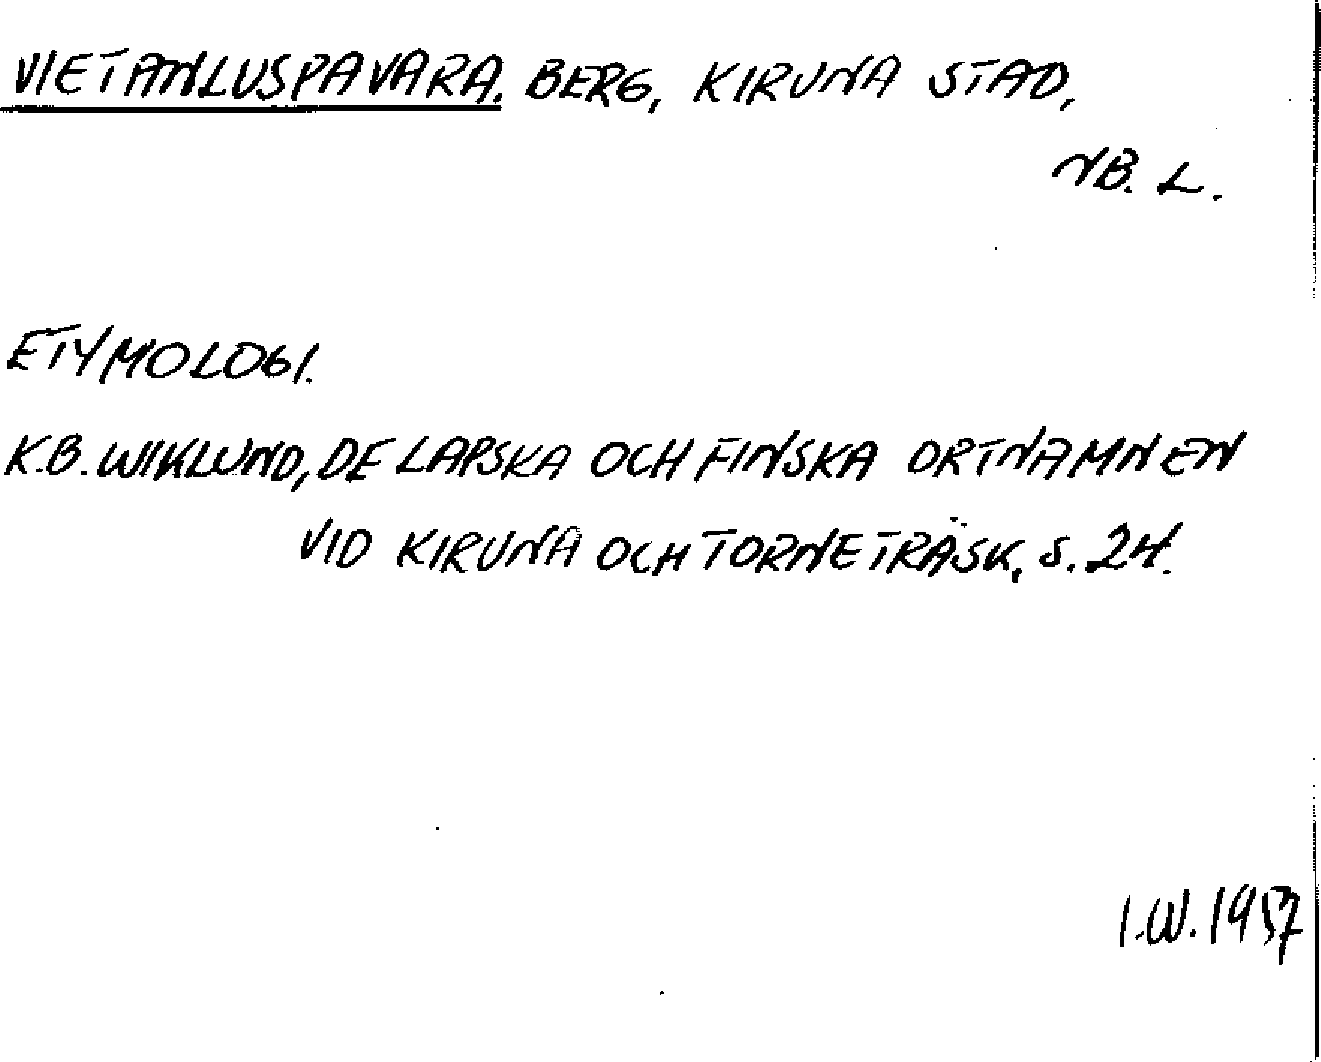 VIETANLUSPAVARA. BERG, KIRUNA STAD,
NB. L.
ETYMOLOGI.
K.B. WIKLUND, DE LAPSKA OCH FINSKA ORTNAMNEN
VID KIRUNA OCH TORNETRÄSK, S. 24.
I.W. 1957